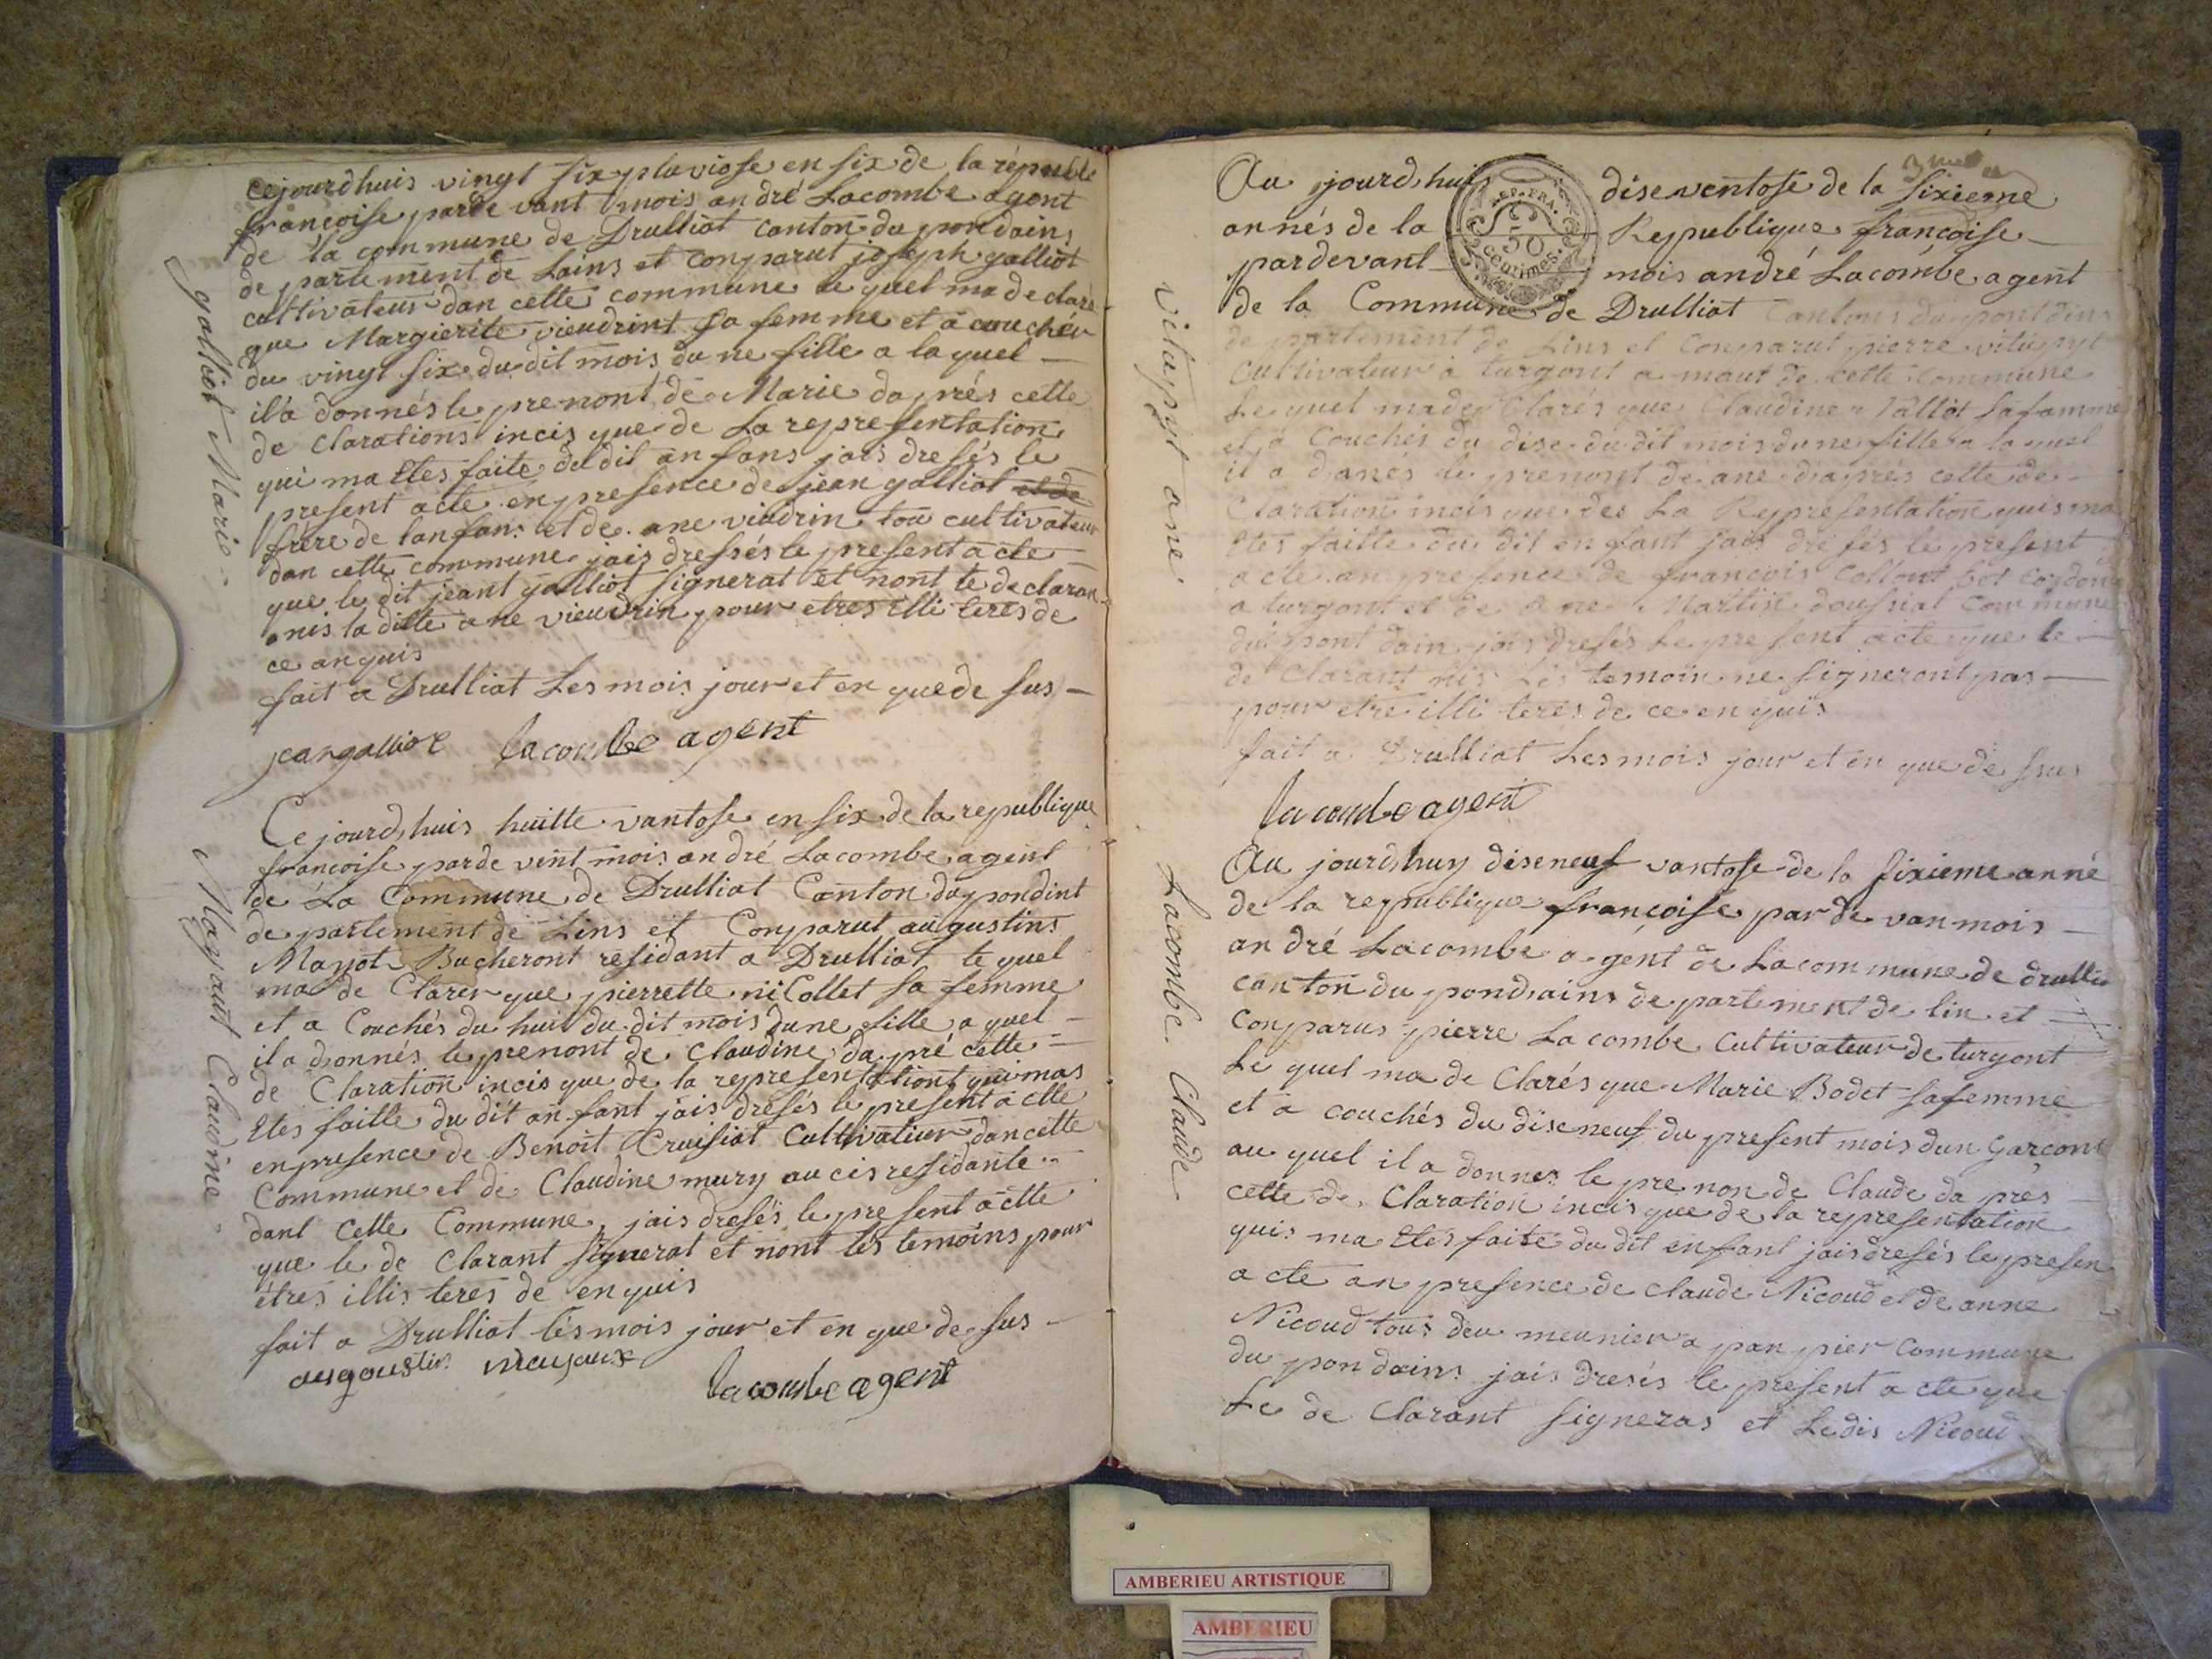 galliot Marie
cejourdhuis vingt six pluviose en six de la république
françoise parde vant mois andré Lacombe agent
de la commune de Drulliat canton du pondains
de partement de Lains et conparut joseph galliot
cultivateur dan cette commune le quel ma de claré
que Margierite vieudrint sa femme et à couchér
du vingt six du dit mois du ne fille a la quel
il a donnés le prenont de Marie da prés cette
de clarations incis que de La representation
qui ma Etes faite du dit an fans jais dresés le
present acte en presence de jean galliot et de
frere de lanfans et de ane viudrin tou cultivateur
dan cette commune jais dressés le present acte
que le dit jeant galliot signerat et nont le declaran
nis la ditte a ne vieudrin pour etres illi terés de
ce anquis
fait a Drulliat Les mois jour et en que de sus
jeangalliot lacombe agent
Mayaut Claudine
Ce jourdhuis huitte vantose en six de la republique
françoise parde vint mois andré Lacombe agent
de La Commune de Drulliat Canton du pondint
de partement de Lins et Conparut augustins
Mayot Bucheront residant a Drulliat le quel
ma de Clarer que pierrette niCollet sa femme
et a Couchés du huit du dit mois dune fille a quel
il a donnés le prenont de Claudine da pré cette
de Claration incis que de la representationt qui mas
Etes faitte du dit an fant jais dresés le present actte
en presence de Benoit Cruisiat Cultivateur dan cette
Commune et de Claudine mury au cis residante
dant Cette Commune, jais dresés le present actte
que le de Clarant signerat et nont les temoins pour
étres illis terés de enquis
fait a Drulliat les mois jour et en que de sus
augoustin mayaux
lacombe agent
vitupyt ane
Au jourdhuis disenventose de la sixieme
annés de la Republique françoise
pardevant mois andré Lacombe agent
de la Commune de Drulliat Cantons du pont dins
de partement de Lins et Conparut pierre vitupyt
Cultivateur à turgont a maut de cette Commune
Le quel made Clarés que Claudine Vallot sa famme
et a Couchés du dise du dit mois du ne fille a la quel
il a donés le prenont de ane daprés cette de
Claration incis que des La Representation quis ma
Etes faitte du dit en fant jais dresés le present
acte an presence de françois Collont Cordon
a turgont et de ane Martin Commune
du pont dain jais dresés Le present acte que le
de Clarant nis Les temoin ne signeront pas
pour etre illi terés de ce en quis
fait a Drulliat Les mois jour et en que de ssus
lacombe agent
Lacombe Claude
Au jourdhuy diseneuf vantose de la sixieme anné
de la republique françoise par de van mois
andré Lacombe agent de La commune de drullia
canton du pondains de partement de lin et
Conparus pierre La combe Cultivateur de turgont
Le quel ma de Clarés que Marie Bodet sa femme
et à couchés du diseneuf du present mois dun garcont
au quel il a donnes le pre non de Claude da pres
cette de Claration incis que de la representation
quis ma Etés faite du dit enfant jais dresés le presen
acte an presence de claude Nicoud et de anne
Nicoud tous deu meunier a pan pier Commune
du pon dains jais dresés le present acte que
Le de Clarant signeras et Ledis Nicoud
REP. FRA.
50
centimes.
AMBERIEU ARTISTIQUE
AMBERIEU